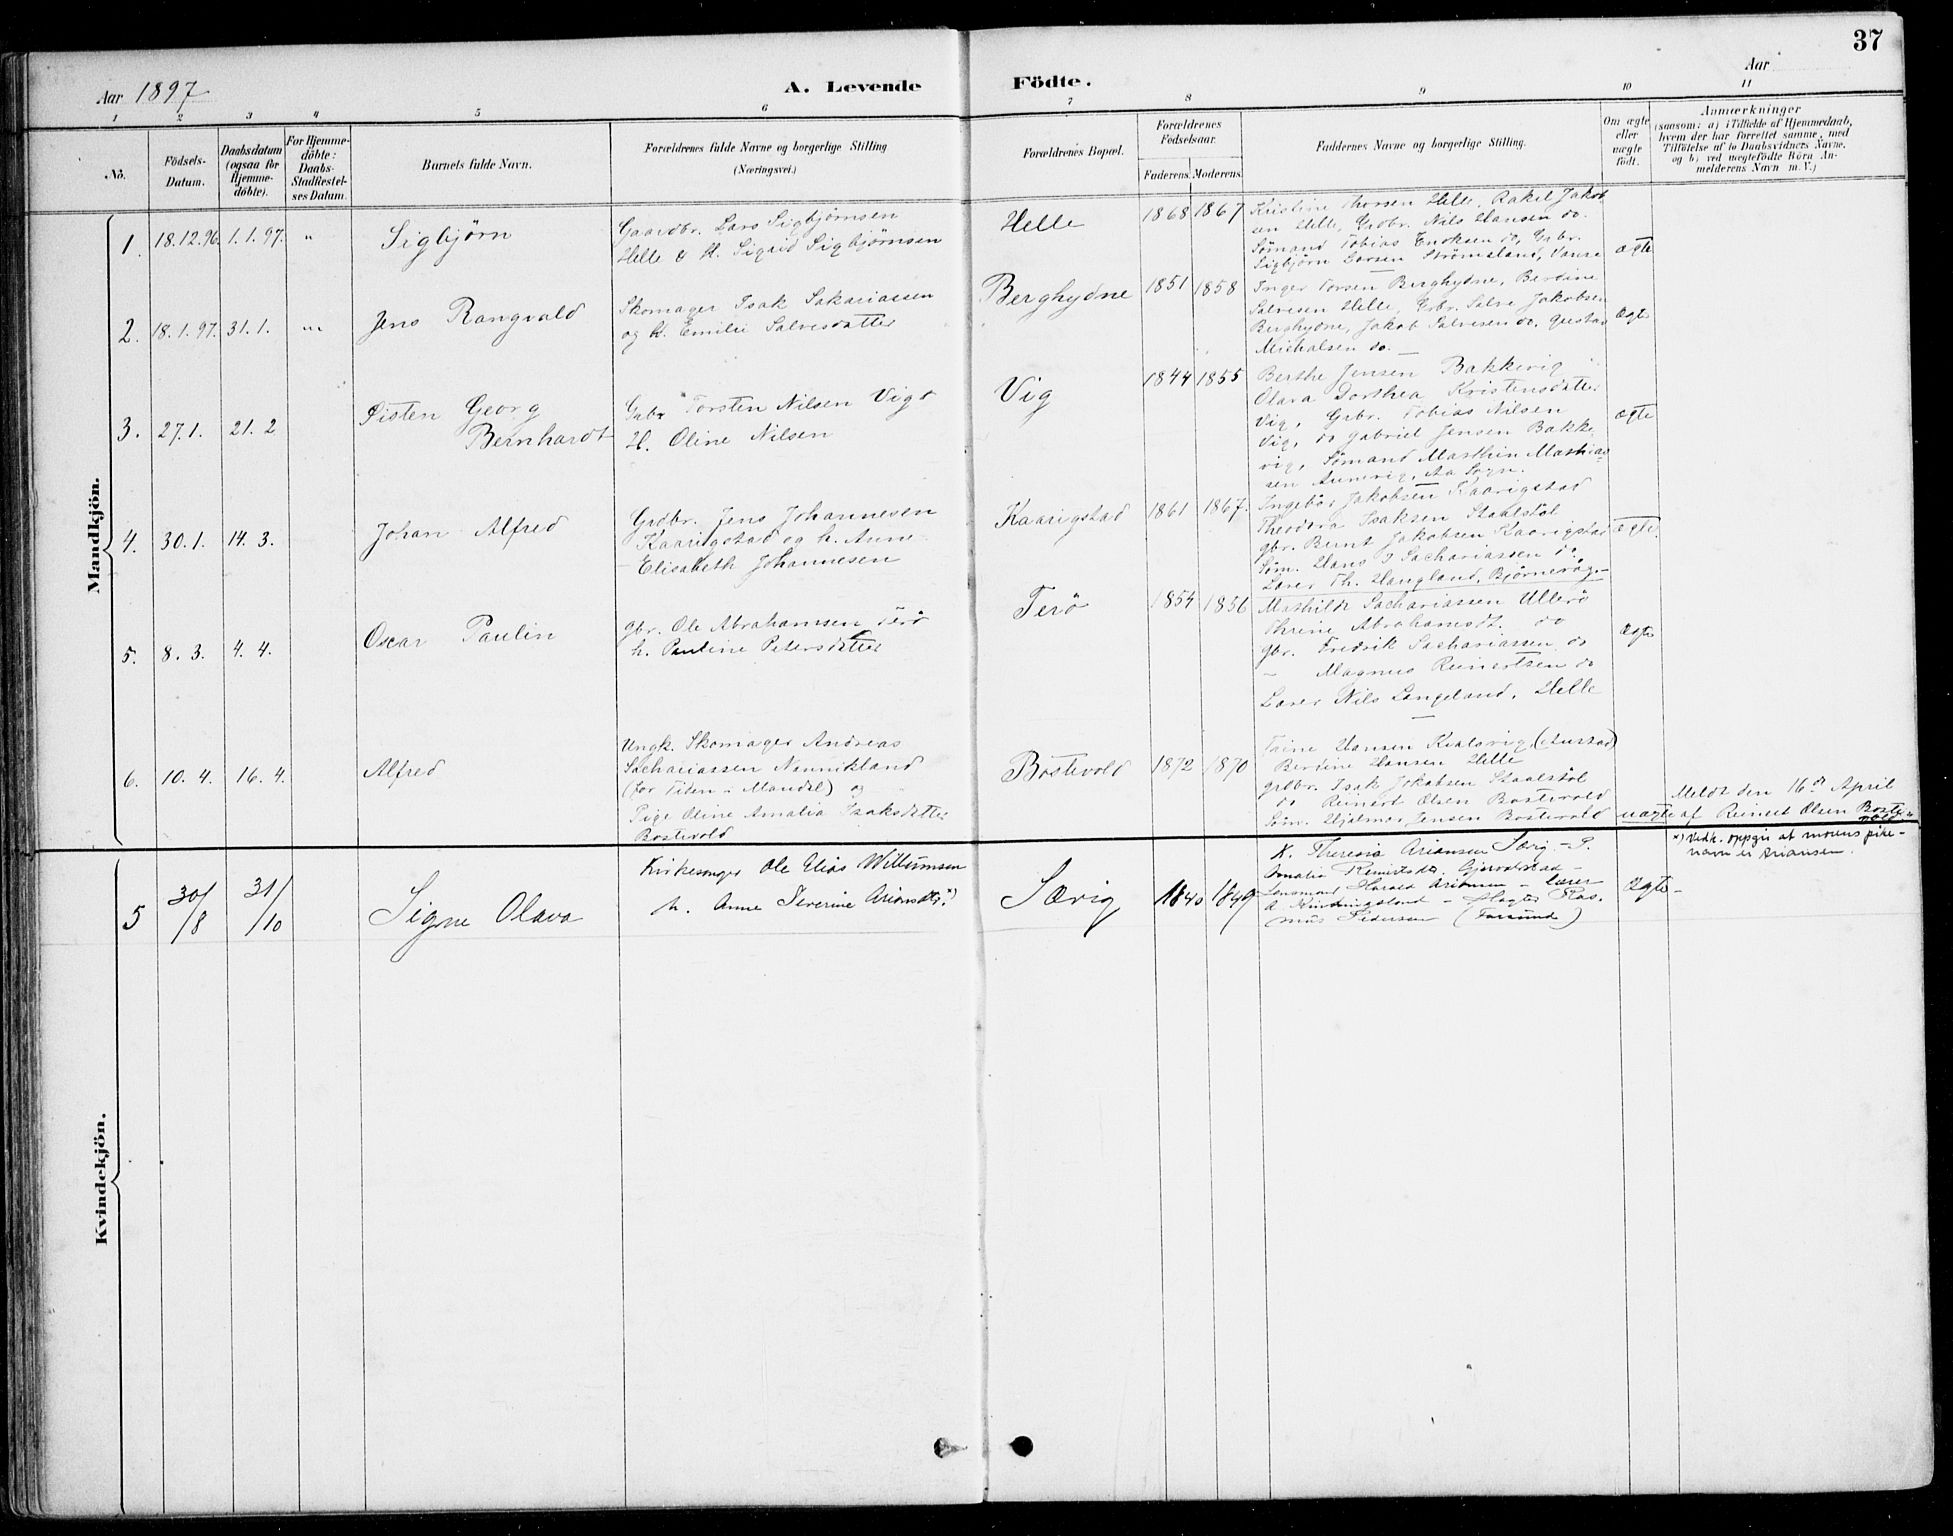 37
Aar 1897
A. Levende Födte.
Aar
1 2 3 4 5 6 7 8 9 10 11
No.
Födsels-Datum.
Daabsdatum (ogsaa for Hjemme-döbte).
For Hjemme-döbte: Daabs-Stadfæstel-ses Datum.
Barnets fulde Navn.
Forældrenes fulde Navne og borgerlige Stilling
(Næringsvei.)
Forældrenes Bopæl.
Forældrenes Födselsaar.
Faderens. Moderens.
Faddernes Navne og borgerlige Stilling.
Om ægte eller uægte födt.
Anmærkninger
(saasom: a) i Tilfælde af Hjemmedaab,
hvem der har forrettet samme, med
Tilföielse af to Daabsvidners Navne,
og b) ved uegtefödte Börn An-
melderens Navn m. V.)
Mandkjön.
1. 18.12.96. 1.1.97. " Sigbjörn
Gaardbr. Lars Sigbjørnsen
Helle & H. Sigrid Sigbjørnsen
Helle 1868 1867
Kristine Thorsen Helle, Rakel Jakob
sen Helle, Grdbr. Nils Hansen do.
Sömand Tobias Enoksen do, Grbr.
Sigbjörn Larsen Strömsland, Vanse
ægte
2. 18.1.97. 31.1. " Jens Rangvald
Skomager Isak Sakariassen
og H. Emilie Salvesdatter
Berghydne 1851 1858
Inger Torsen Berghydne, Bertine
Salvesen Helle, Grbr. Salve Jakobsen
Berghydne, Jakob Salvesen do. Gustav
Michalsen do.
Ægte
3. 27.1. 21.2 Georg
Bernhardt
Grbr Torsten Nilsen Vig &
H. Oline Nilsen
Vig 1844 1855
Berthe Jensen Bakkevig
Olava Dorthea Kristensdatter
Vig, Grbr. Tobias Nilsen
Vig, do Gabriel Jensen Bakke
vig, Sömand Mathias
sen Aa Sogn.
ægte
4. 30.1. 14.3. Johan Alfred
Grdbr. Jens Johannesen
Kaarigstad og h. Anne
Elisabeth Johannesen
Kaarigstad 1861 1867.
Ingebor Jakobsen Kaarigstad
Theodora Isaksen Staalstöl
gbr. Bernt Jakobsen Kaarigstad
Söm. Hans J Sachariassen do.
Lærer Th. Haugland,
ægte.
5. 8.3. 4.4. Oscar Paulin
gbr. Ole Abrahamsen Terö
h. Pauline Petersdatter
Terö 1854 1856
Mathilde Sachariassen Ullerö
Thrine Abrahamsdt. do
gbr. Fredrik Sachariassen do
– Magnus Reinertsen do
Lærer Nils Langeland, Helle
Ægte
6. 10.4. 16.4. Alfred
Ungk. Skomager Andreas
Sachariassen Nannikland
Mandal) og
Pige Oline Amalia Isaksdatter
Bostevold
Bostevold 1872 1870
Taine Hansen Kvalsvig (Austad)
Berdine Hansen Helle
grdbr. Isak Jakobsen Staalstöl
do Reinert Olsen Bostevold
Söm. Hjalmar Jensen Bostevold
uægte
Meldt den 16de April
af Reinert Olsen Boste-
vold.
Kvindekjön.
5 30/8 31/10 Signe Olava
Kirkesanger Ole Elias Willumsen
h. Anne Severine Ariansdtr.*)
Særig 1840 1849
K. Theresia Ariansen Særig – P.
Amalia Reinertsdtr.
Lensmand Harald Ariansen – Lærer
A. – Fløgter Ras-
mus Pedersen (Farsund)
Ægte
*) Vedk. oppgir at morens pike-
navn er Ariansen.